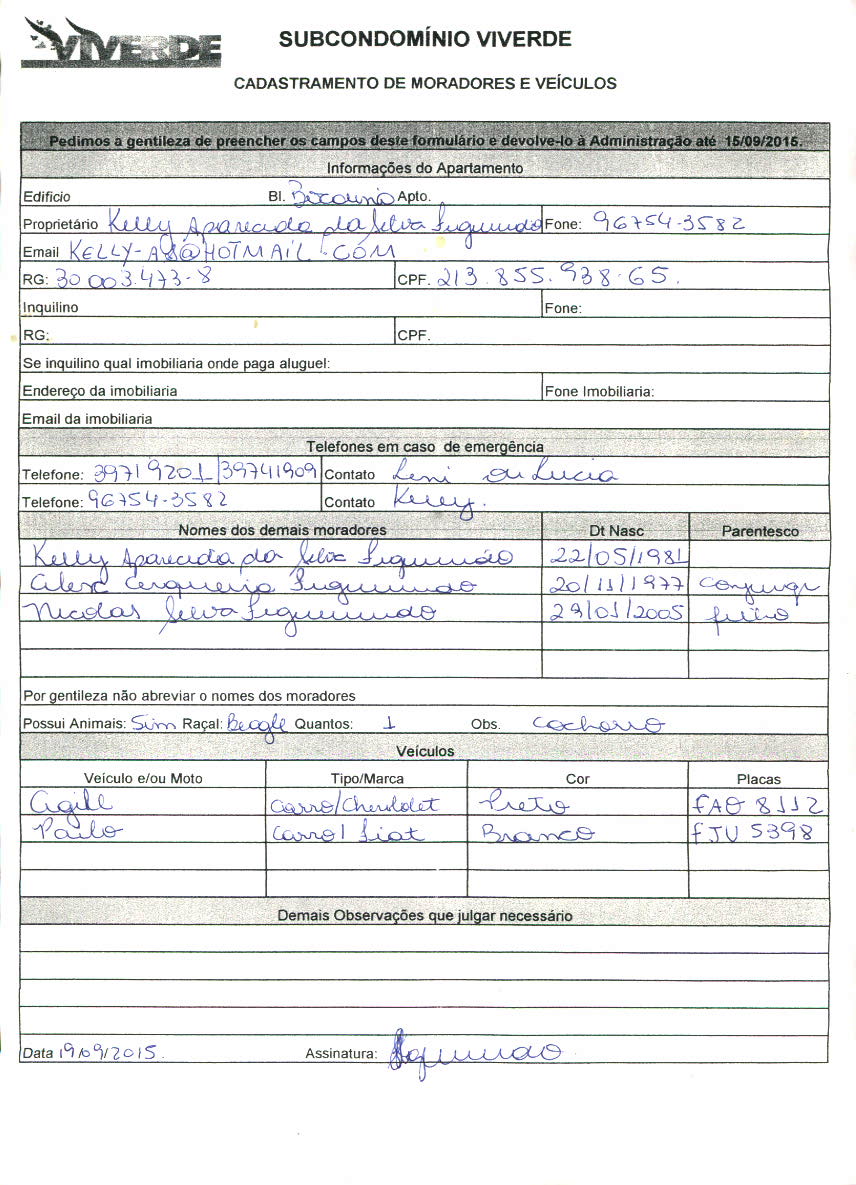 VIVERDE
SUBCONDOMÍNIO VIVERDE
CADASTRAMENTO DE MORADORES E VEÍCULOS
Pedimos a gentileza de preencher os campos deste formulário e devolve-lo à Administração até 15/09/2015.
Informações do Apartamento
Edificio Bl. Apto.
Proprietário Kelly Aparecida da Silva Figueiredo Fone: 96754-3582
Email @HOTMAIL.COM
RG: 30 003.473-8 CPF. 213.855.938-65.
Inquilino Fone:
RG: CPF.
Se inquilino qual imobiliaria onde paga aluguel:
Endereço da imobiliaria Fone Imobiliaria:
Email da imobiliaria
Telefones em caso de emergência
Telefone: 39719201/39741909 Contato Leni ou Lucia
Telefone: 96754-3582 Contato Kelly.
Nomes dos demais moradores Dt Nasc Parentesco
Kelly Aparecida da Silva 22/05/1981
Alex Cerqueira 20/11/1977
Nicolas Silva 29/01/2005 filho
Por gentileza não abreviar o nomes dos moradores
Possui Animais: Sim Raçal: Beagle Quantos: 1 Obs. Cachorro
Veículos
Veículo e/ou Moto Tipo/Marca Cor Placas
Agill Carro/Chevrolet Preto FAO 8112
Palio Carro/Fiat Branco FJU 5398
Demais Observações que julgar necessário
Data 19/09/2015. Assinatura: